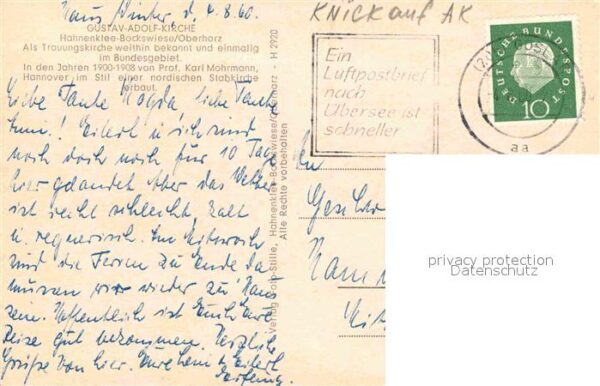 Haus Winter, d. 4.8.60.
KNICK auf AK
GUSTAV-ADOLF-KIRCHE
Hahnenklee-Bockswiese/Oberharz
Als Trauungskirche weithin bekannt und einmalig
im Bundesgebiet.
In den Jahren 1900-1908 von Prof. Karl Mohrmann,
Hannover im Stil einer nordischen Stabkirche
erbaut.
Liebe Tante Magda, liebe Tante
u. ich sind
noch doch noch für 10 Tage
hier gelandet. Aber das Wetter
ist recht schlecht, kalt
u. regnerisch. Am Mittwoch
sind die Ferien zu Ende da
müssen wir wieder zu Haus
sein. Hoffentlich ist Euch Eure
Reise gut bekommen. Herzliche
Grüße von hier. Eure
Verlag Foto-Stille, Hahnenklee-Bockswiese/Oberharz - H 2920
Alle Rechte vorbehalten
Ein
Luftpostbrief
nach
Übersee ist
schneller
aa
DEUTSCHE BUNDESPOST
10
privacy protection
Datenschutz